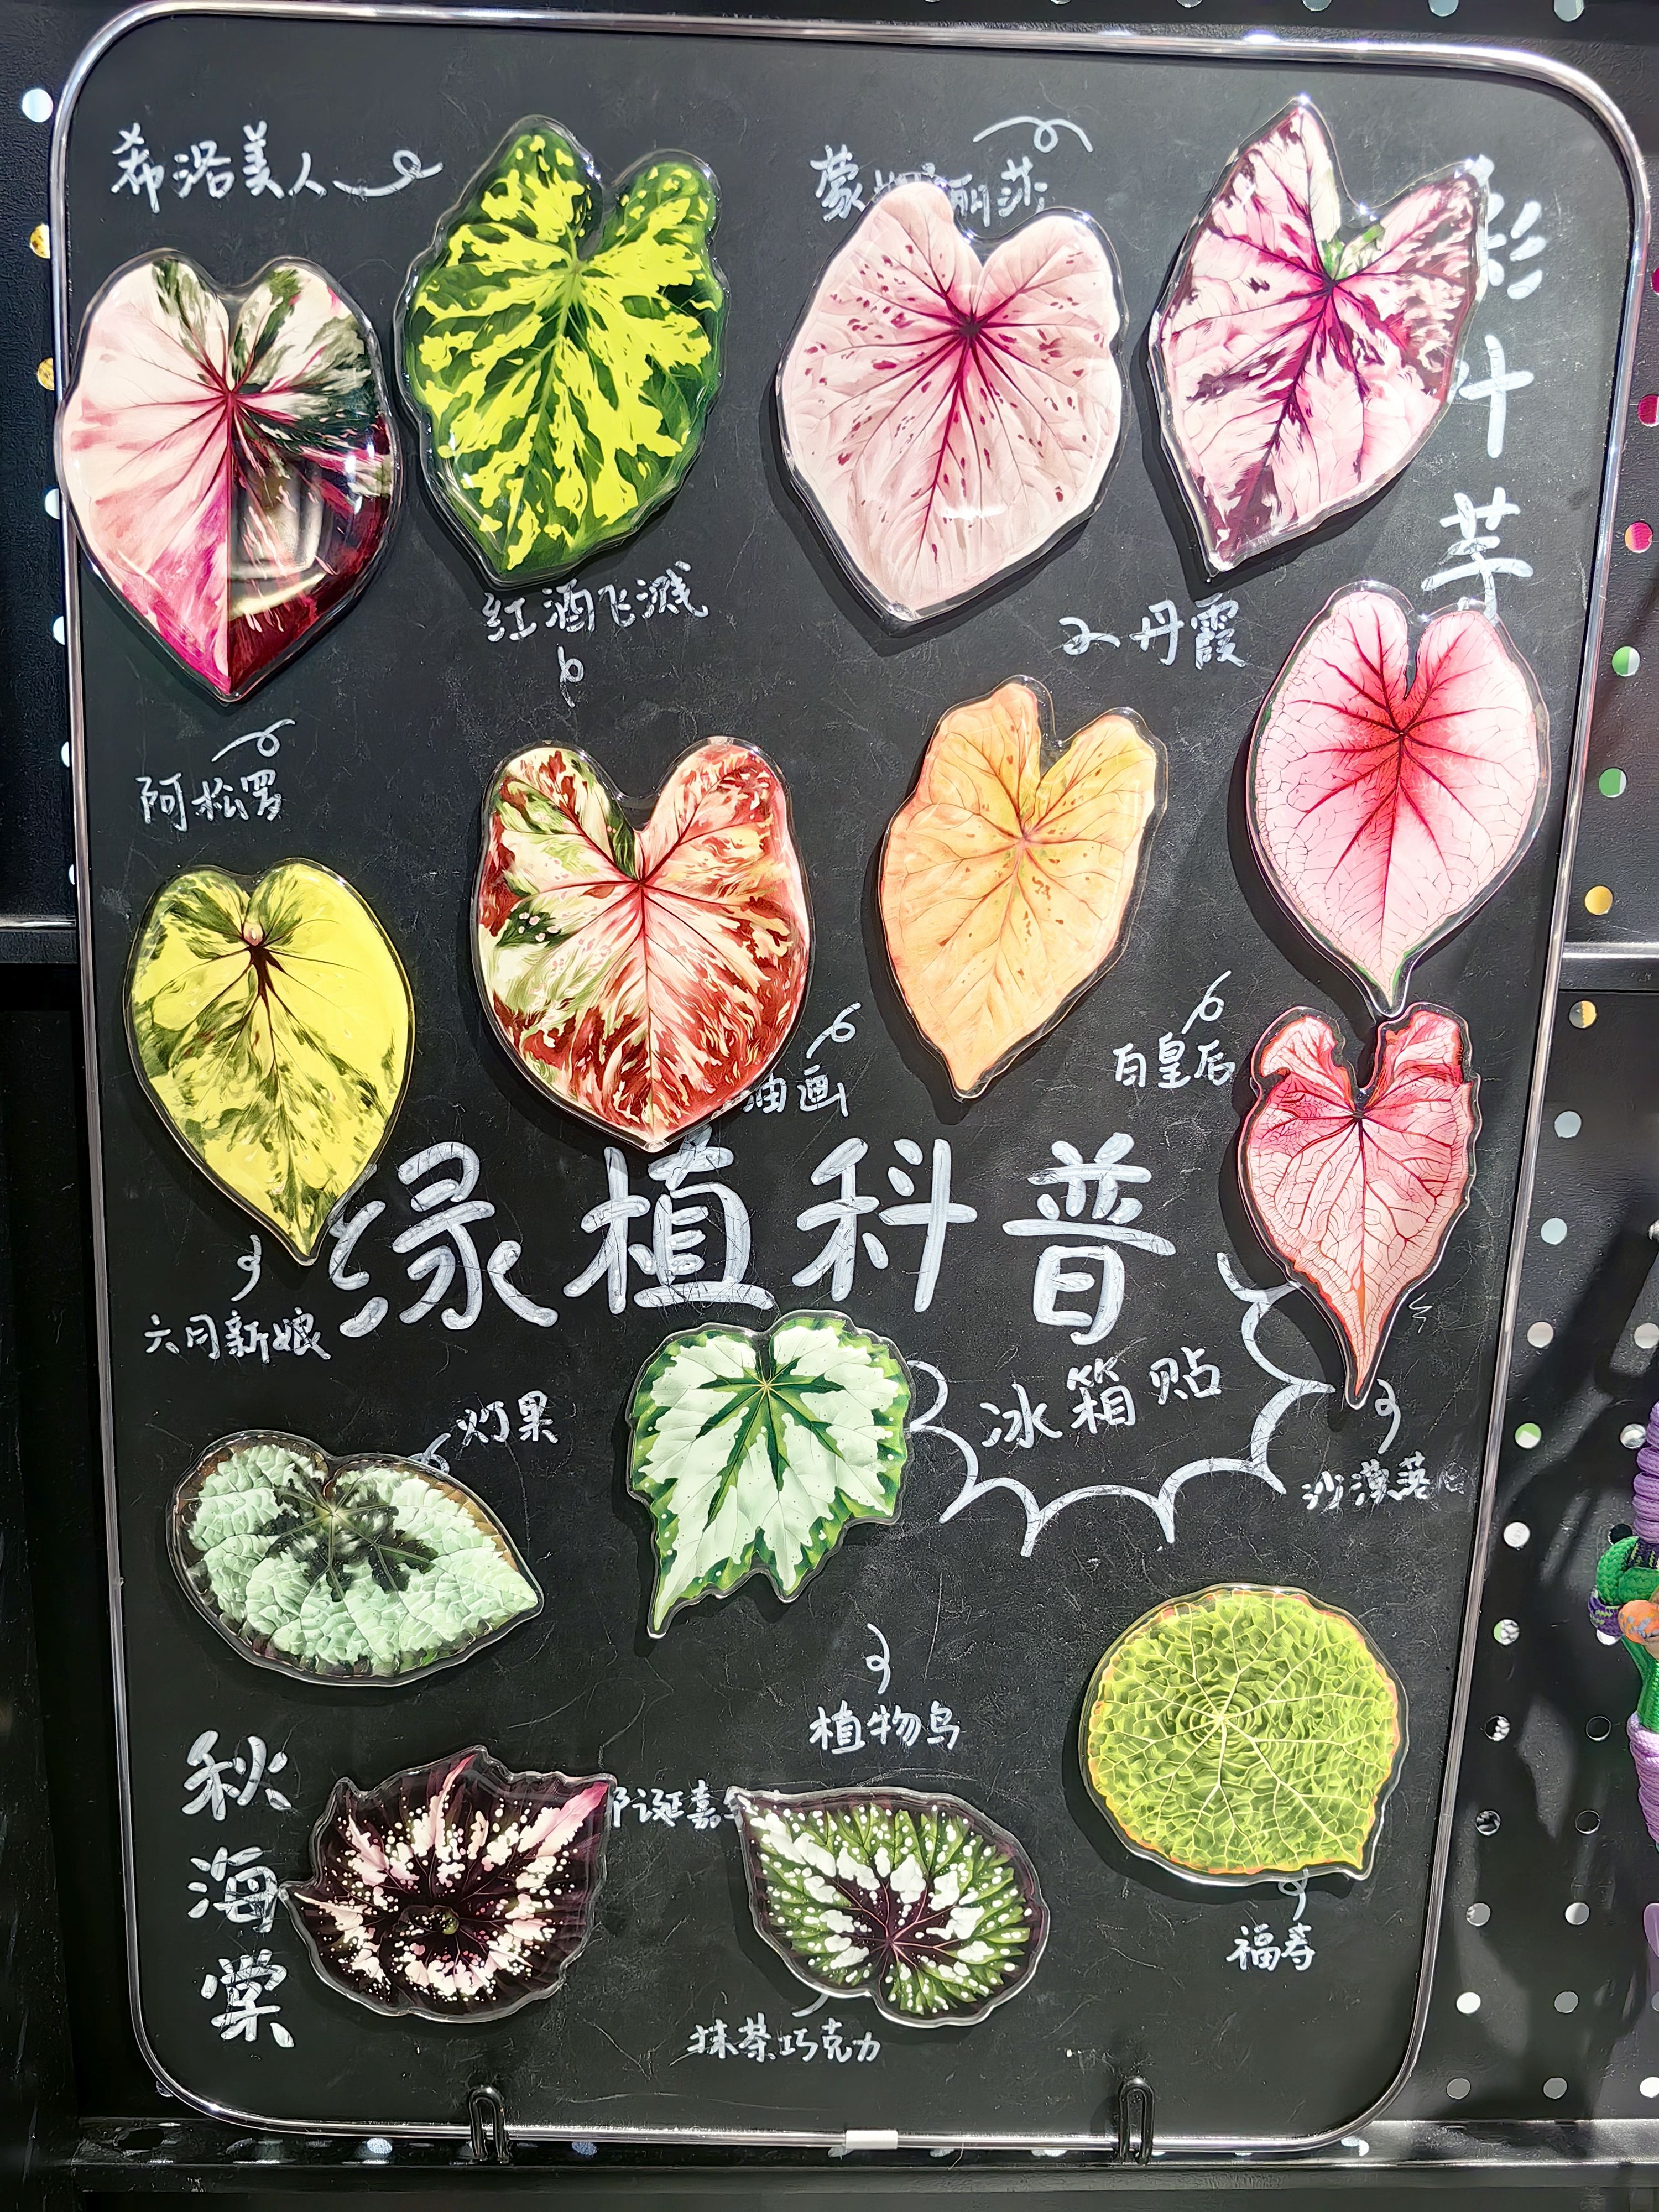 希洛美人
蒙娜丽莎
彩叶芋
红酒飞溅
小丹霞
阿松罗
油画
白皇后
绿植科普
六月新娘
冰箱贴
灯果
沙漠落
植物鸟
秋海棠
诞嘉
福寿
抹茶巧克力